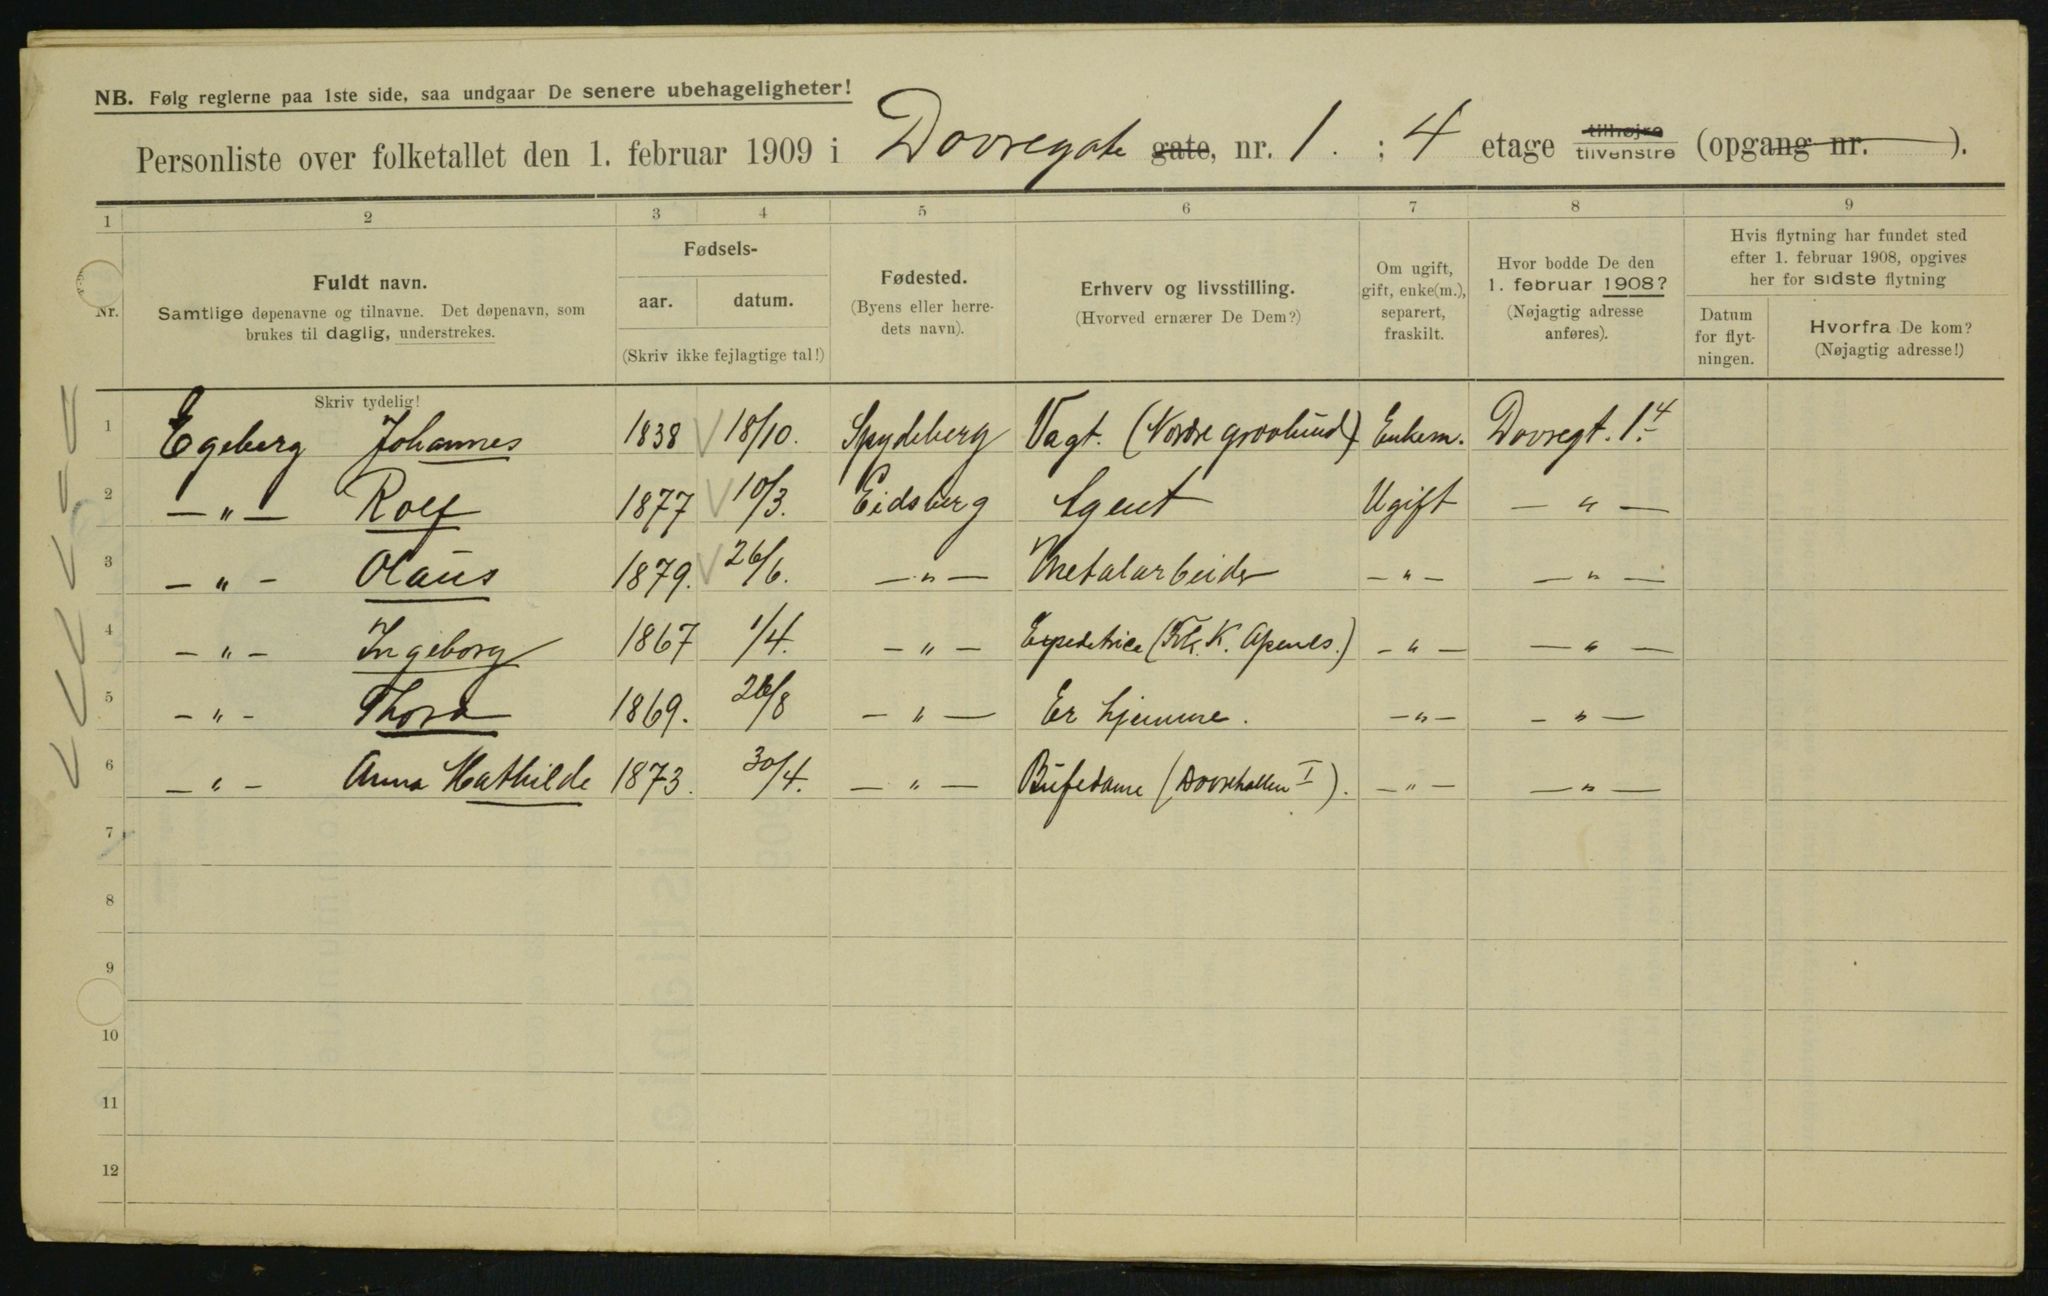 NB. Følg reglerne paa 1ste side, saa undgaar De senere ubehageligheter!
Personliste over folketallet den 1. februar 1909 i Dovregate gate, nr. 1. ; 4 etage tilhøjre tilvenstre (opgang nr. ).
1 2 3 4 5 6 7 8 9
Nr.
Fuldt navn.
Samtlige døpenavne og tilnavne. Det døpenavn, som
brukes til daglig, understrekes.
Skriv tydelig!
Fødsels-
aar. datum.
(Skriv ikke fejlagtige tal!)
Fødested.
(Byens eller herre-
dets navn).
Erhverv og livsstilling.
(Hvorved ernærer De Dem?)
Om ugift,
gift, enke(m.),
separert,
fraskilt.
Hvor bodde De den
1. februar 1908?
(Nøjagtig adresse
anføres).
Hvis flytning har fundet sted
efter 1. februar 1908, opgives
her for sidste flytning
Datum
for flyt-
ningen.
Hvorfra De kom?
(Nøjagtig adresse!)
1 Egeberg Johannes 1838 18/10. Spydeberg Vagt. (Nordre gravlund) Enkem. Dovregt. 1.4
2 — " — Rolf 1877 10/3. Eidsberg Agent Ugift — " —
3 — " — Olaus 1879. 26/6. — " — Metalarbeider — " — — " —
4 — " — Ingeborg 1867 1/4. — " — Expeditrice (Frk. K. Apenes.) — " — — " —
5 — " — Thora 1869. 26/8 — " — Er hjemme. — " — — " —
6 — " — Anna Mathilde 1873. 30/4. — " — Bufedame (Dovrehallen I). — " — — " —
7
8
9
10
11
12